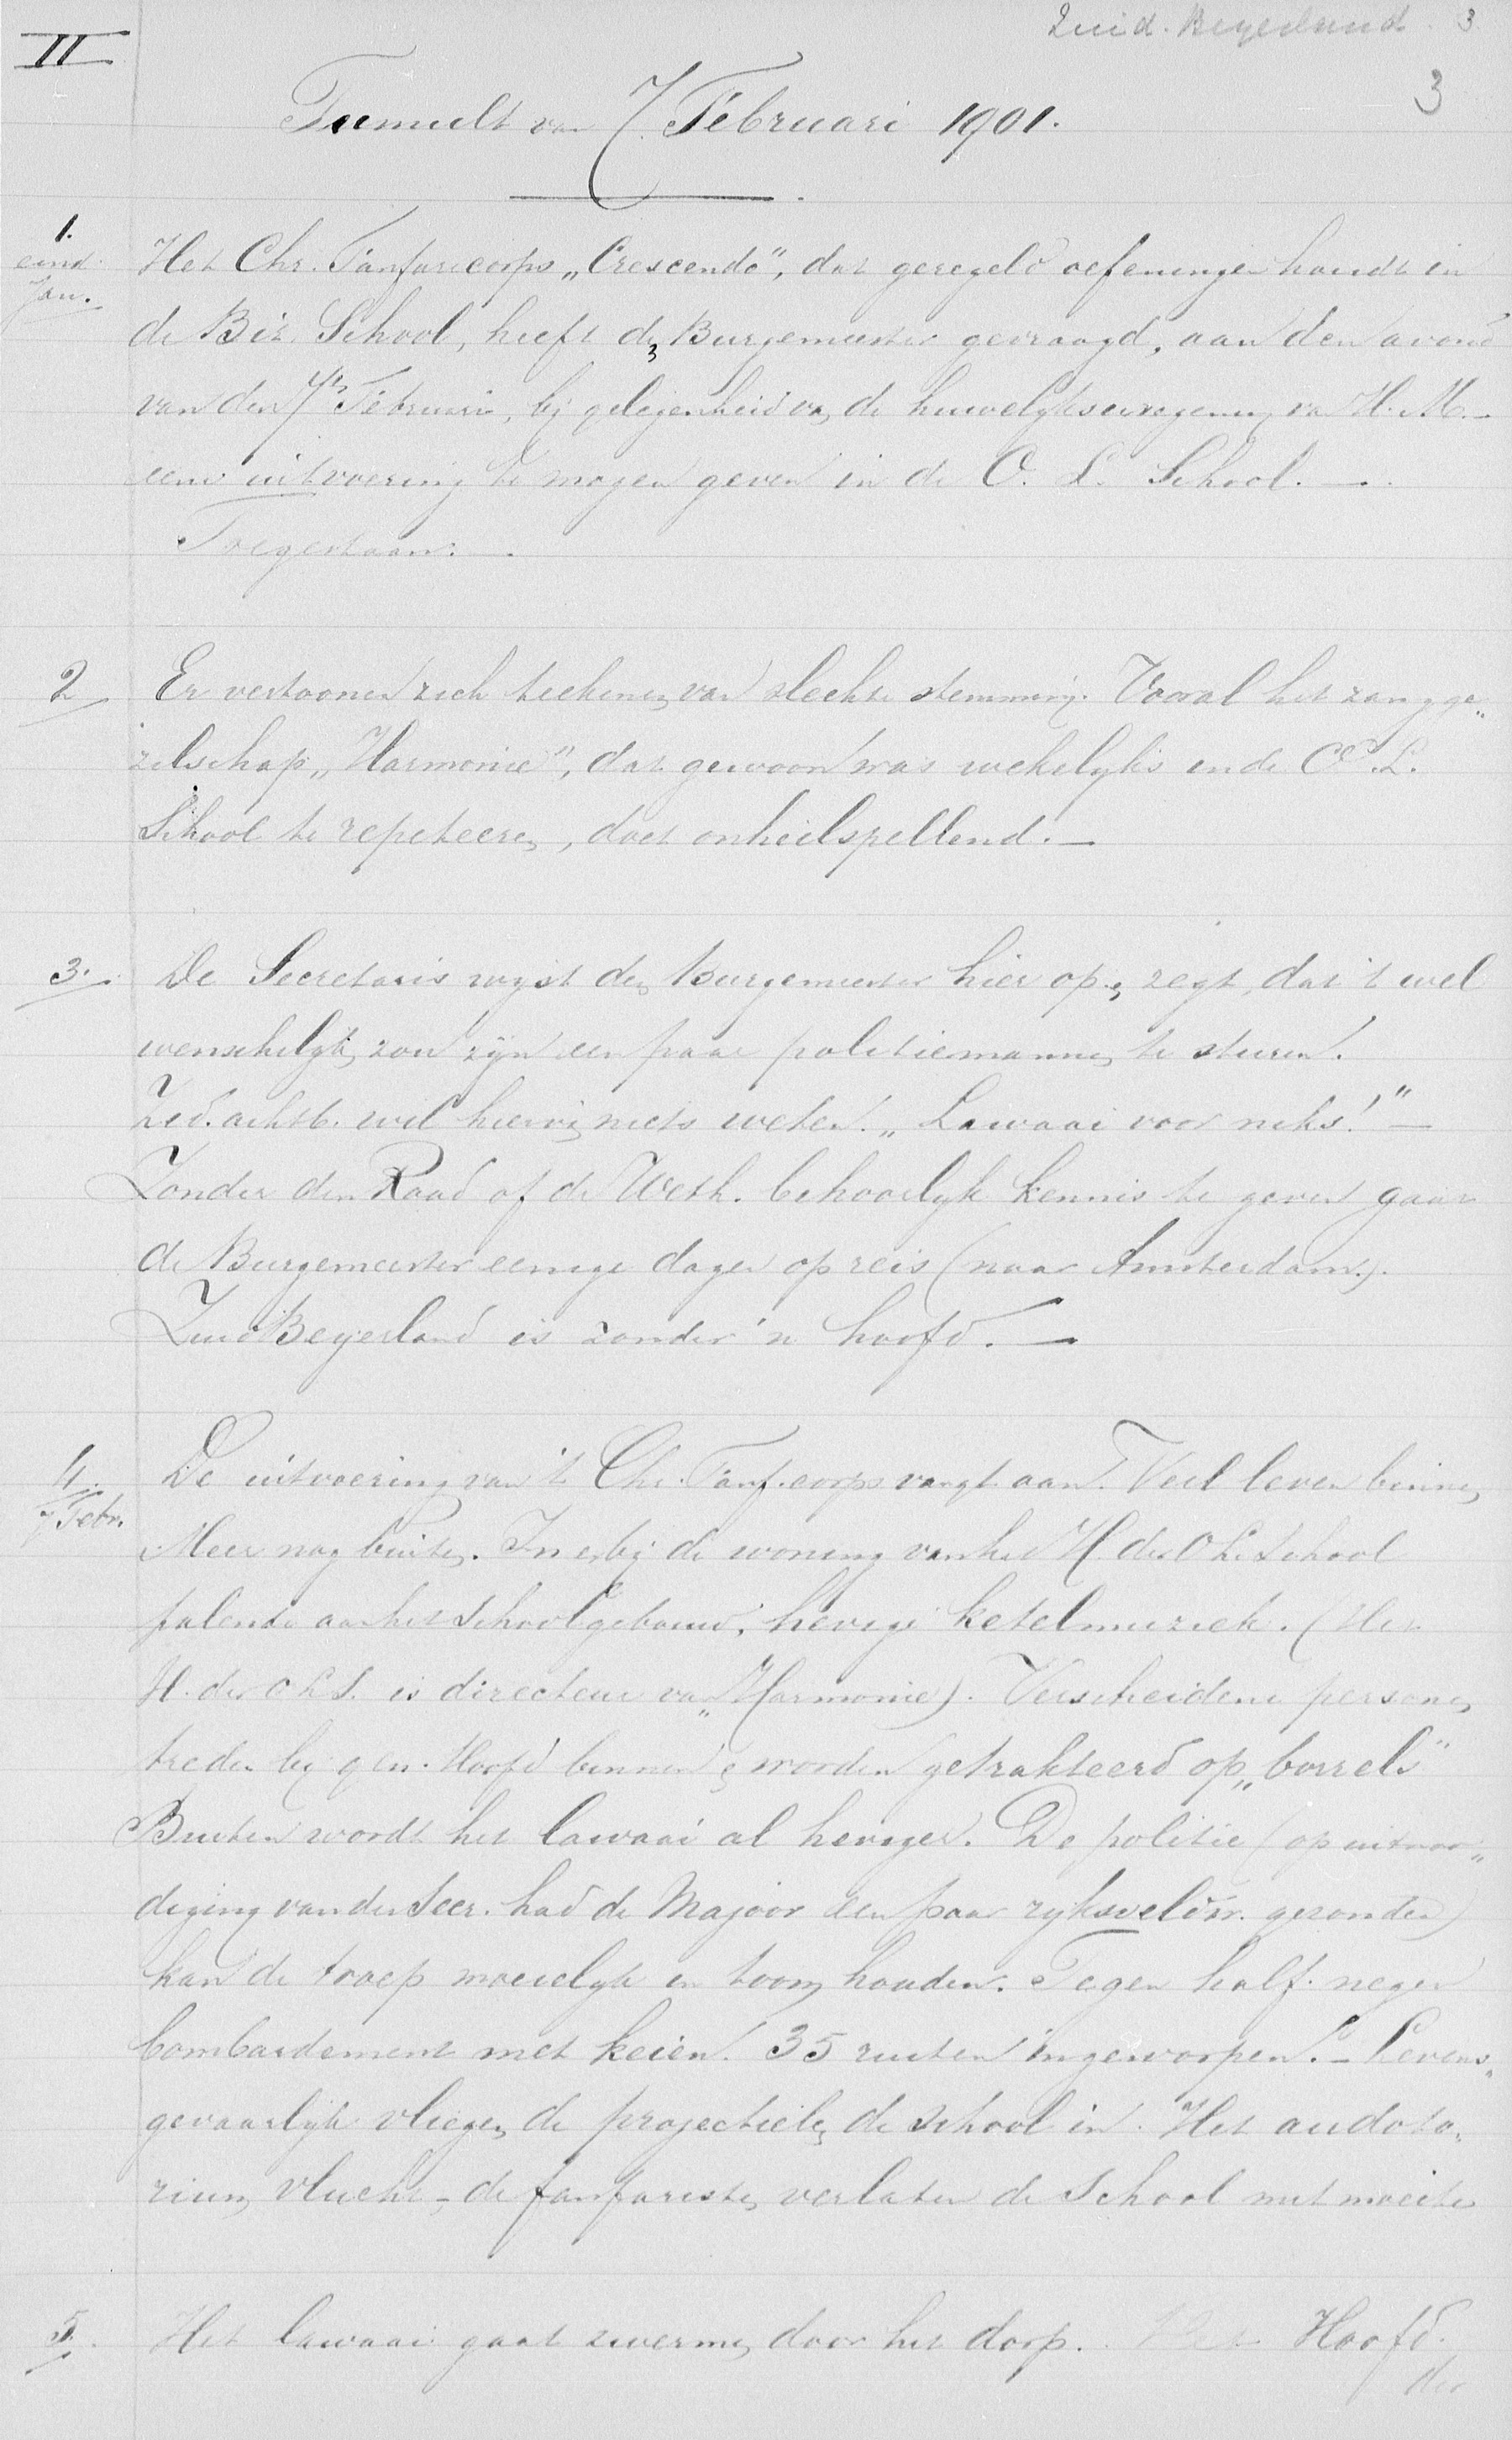 Zuid-Beyerland. 3.
3
II
Tumult van 7 Februari 1901.
1.
eind
Jan.
Het Chr. Fanfarecorps „Crescendo", dat geregeld oefeningen houdt in
de Biz. School, heeft den Burgemeester gevraagd, aan den avond
van den 7en Februari, bij gelegenheid van de huwelijksinzegening van H.M.—
eene uitvoering te mogen geven in de O. L. School. —.
Toegestaan: —.
2
Er vertoonen zich teekenen van slechte stemming. Vooral het zangge„
zelschap „Harmonie", dat gewoon was wekelijks in de O. L.
School te repeteeren, doet onheilspellend. —
3.
De Secretaris wijst den Burgemeester hier op en zegt, dat 't wel
wenschelijk zou zijn een paar politiemannen te sturen.
Zed. achtb. wil hiervan niets weten. „Lawaai voor niks!" —
Zonder den Raad of de Weth. behoorlijk kennis te geven gaat
de Burgemeester eenige dagen op reis (naar Amsterdam).
Zuid Beyerland is zonder 'n hoofd. —
4.
7 Febr.
De uitvoering van 't Chr. Fanf. corps vangt aan. Veel leven binnen,
Meer nog buiten. In en bij de woning van het H. der O L School
palende aan het schoolgebouw, hevige ketelmuziek. (Het
H. der O L S. is directeur van „Harmonie). Verscheidene personen
treden bij gen. Hoofd binnen en worden getrakteerd op „borrels"
Buiten wordt het lawaai al heviger. De politie (op uitnoo„
diging van den Secr. had de Majoor een paar rijksveldw. gezonden)
kan de troep moeielijk in toom houden. Tegen half negen
bombardement met keien. 35 ruiten ingeworpen. — Levens„
gevaarlijk vliegen de projectielen de school in. Het audito„
rium vlucht — de fanfaristen verlaten de School met moeite
5.
Het lawaai gaat zwermen door het dorp. Het Hoofd
der